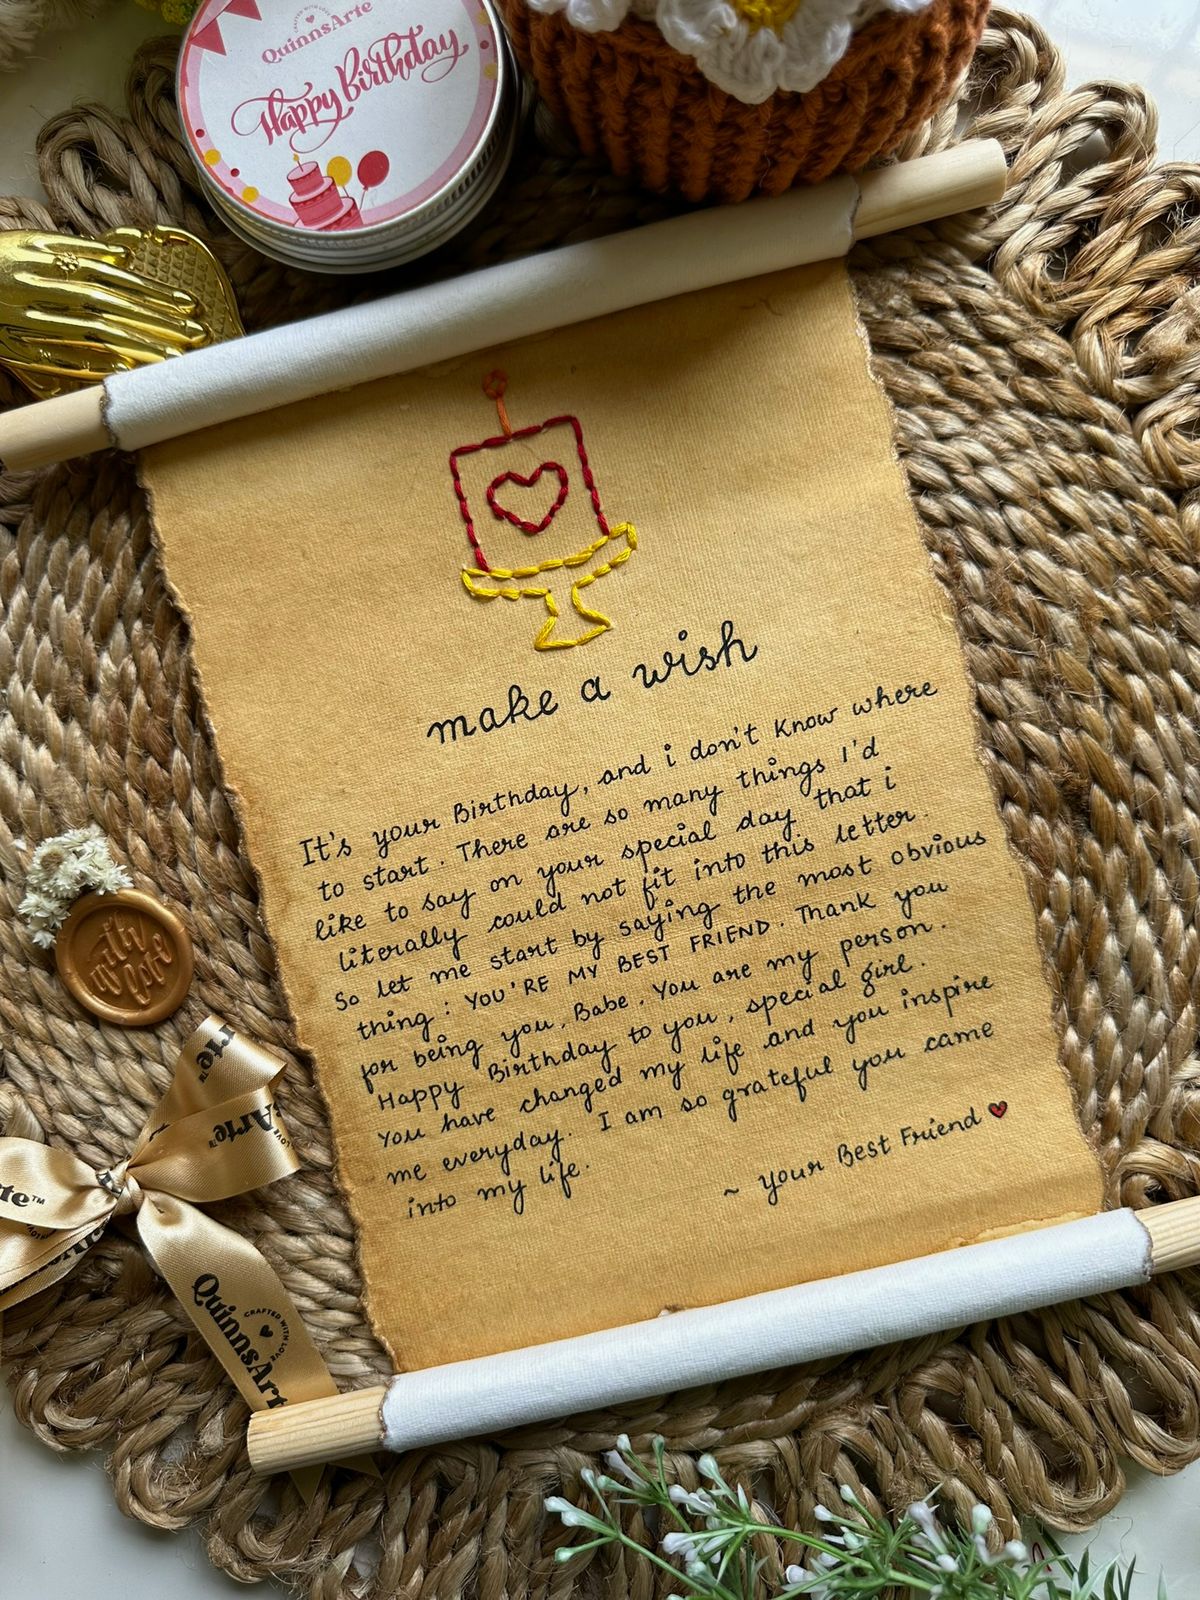 CRAFTED WITH LOVE
QuinnsArte
Happy Birthday
make a wish
It's your Birthday, and i don't know where
to start. There are so many things I'd
like to say on your special day that i
literally could not fit into this letter.
So let me start by saying the most obvious
thing : YOU'RE MY BEST FRIEND. Thank you
for being you, Babe. You are my person.
Happy Birthday to you, special girl.
You have changed my life and you inspire
me everyday. I am so grateful you came
into my life.
~ your Best Friend
with love
rte™
sArte™
LOVE
rte™
QuinnsArt
CRAFTED WITH LOVE